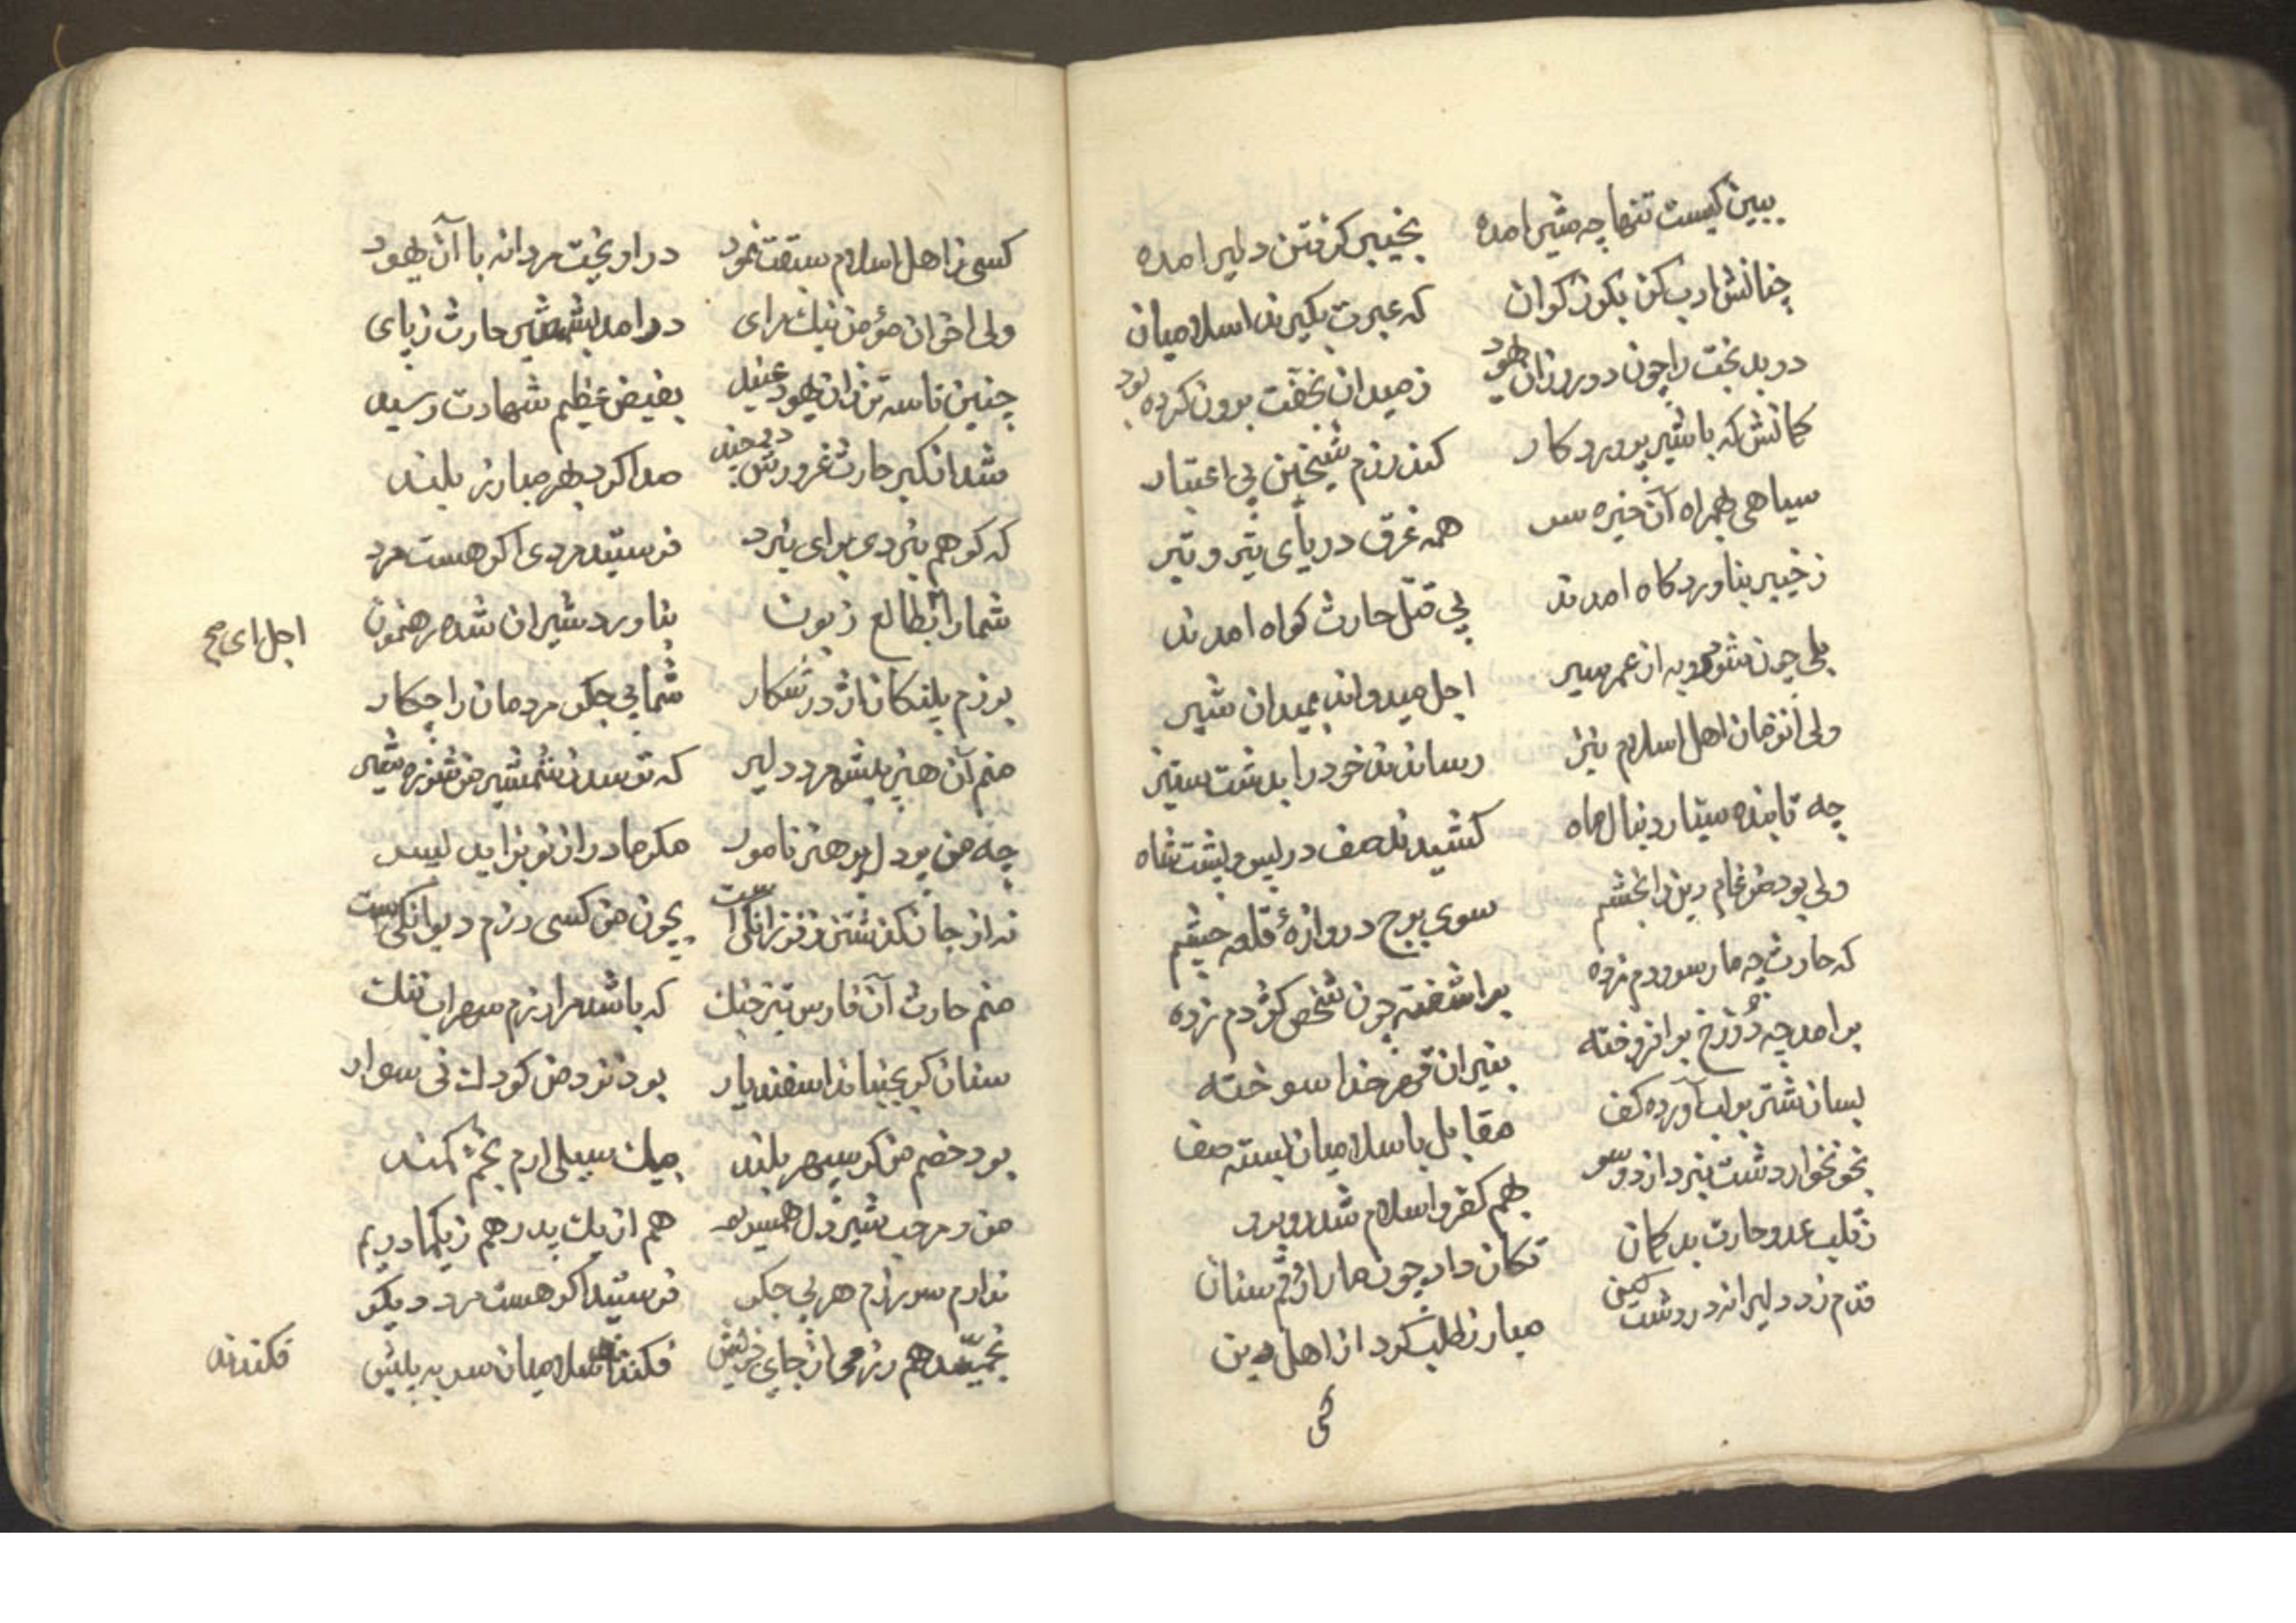 ببین کیست تنها چه شیر امده بخیبر گرفتن دلیر امده
چنانش ادب کن بکوز کران که عبرت بکیرند اسلامیان
دو بدبخت را چون دو روز ان یهود ز میدان بخفت برون کرده بود
کمانش که با شیر پروردکار کند رزم شیخین بی اعتبار
سیاهی بهمراه آن خیره سر همه غرق دریای تیر و تبر
ز خیبر بناوردکاه امدند پی قتل حارث کواه امدند
بلی چون شود روبه از عمر سیر اجل میدواند بمیدان شیر
ولی انزمان اهل اسلام نیز رساندند خود را بدشت ستیز
چه تابنده سیّار دنبال ماه کشیدند صف در پس پشت شاه
ولی بود ضرغام دین را بخشم سوی برج دروازهٔ قلعه چشم
که حارث چه مار سر و دم زده براشفته چون شخص کژدم زده
برامد چه دوزخ برافروخته بنیران قهر خدا سوخته
بسان شتر بر لب آورده کف مقابل باسلامیان بسته صف
بخونخوار دشت نبرد از دو سو بهم کفر و اسلام شد روبرو
ز قلب عدو حارث بدکمان تکان داد چون مار ارقم سنان
قدم زد دلیرانه در دشت کین مبارز طلب کرد از اهل دین
کسی
کسی ز اهل اسلام سبقت نمود دراویخت مردانه با آن یهود
ولی اخر ان مؤمن نیک رای درامد بشمشیر حارث ز پای
چنین تا سه تن زان یهود عنید بفیض عظیم شهادت رسید
شد از کبر حارث غرورش دو چند صدا کرد بهر مبارز بلند
که کو هم نبردی برای نبرد فرستید مردی اکر هست مرد
شما را بطالع زبون بناورد شیران شده رهنمون
اجل ای صح
برزم پلنکان اژدر شکار شما بی جکر مردمان را چکار
منم آن هنرپیشه مرد دلیر که ترسد ز شمشیر من شرزه شیر
چه من پر دل پر هنر نامور مکر مادر از نو بزاید پسر
نه از جان کذشتن ز فرزانکی است بچون من کسی رزم دیوانکی است
منم حارث آن فارس تیز چنک که باشد مرا رزم سهراب ننک
سنان کر بجنباند اسفندیار بود نزد من کودک نی سوار
بود خصم من کر سپهر بلند بیک سیلی ارم بخم کمند
من و مرحب شیر دل همسریم هم از یک پدر هم ز یک مادریم
ندارم سر رزم هر بی جکر فرستید اکر هست مرد دیکر
نجنبید هم رزمی از جای خویش فکندند اسلامیان سر به پیش
فکندند